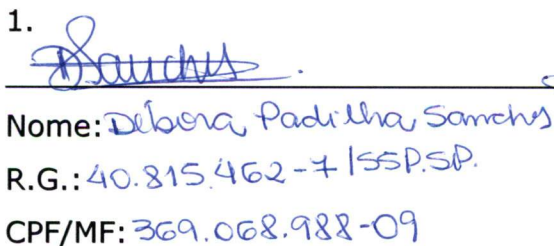 1.
DSanches.
Nome: Debora Padilha Sanches
R.G.: 40.815.462-7 / SSP.SP.
CPF/MF: 369.068.988-09